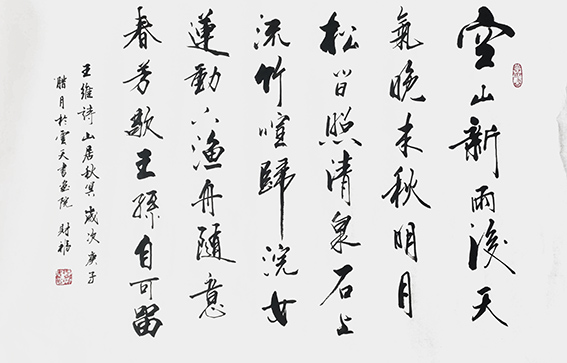 空山新雨後天
氣晚来秋明月
松間照清泉石上
流竹喧歸浣女
蓮動下漁舟隨意
春芳歇王孫自可留
王維詩山居秋冥歲次庚子
臘月於雲天書画院財福